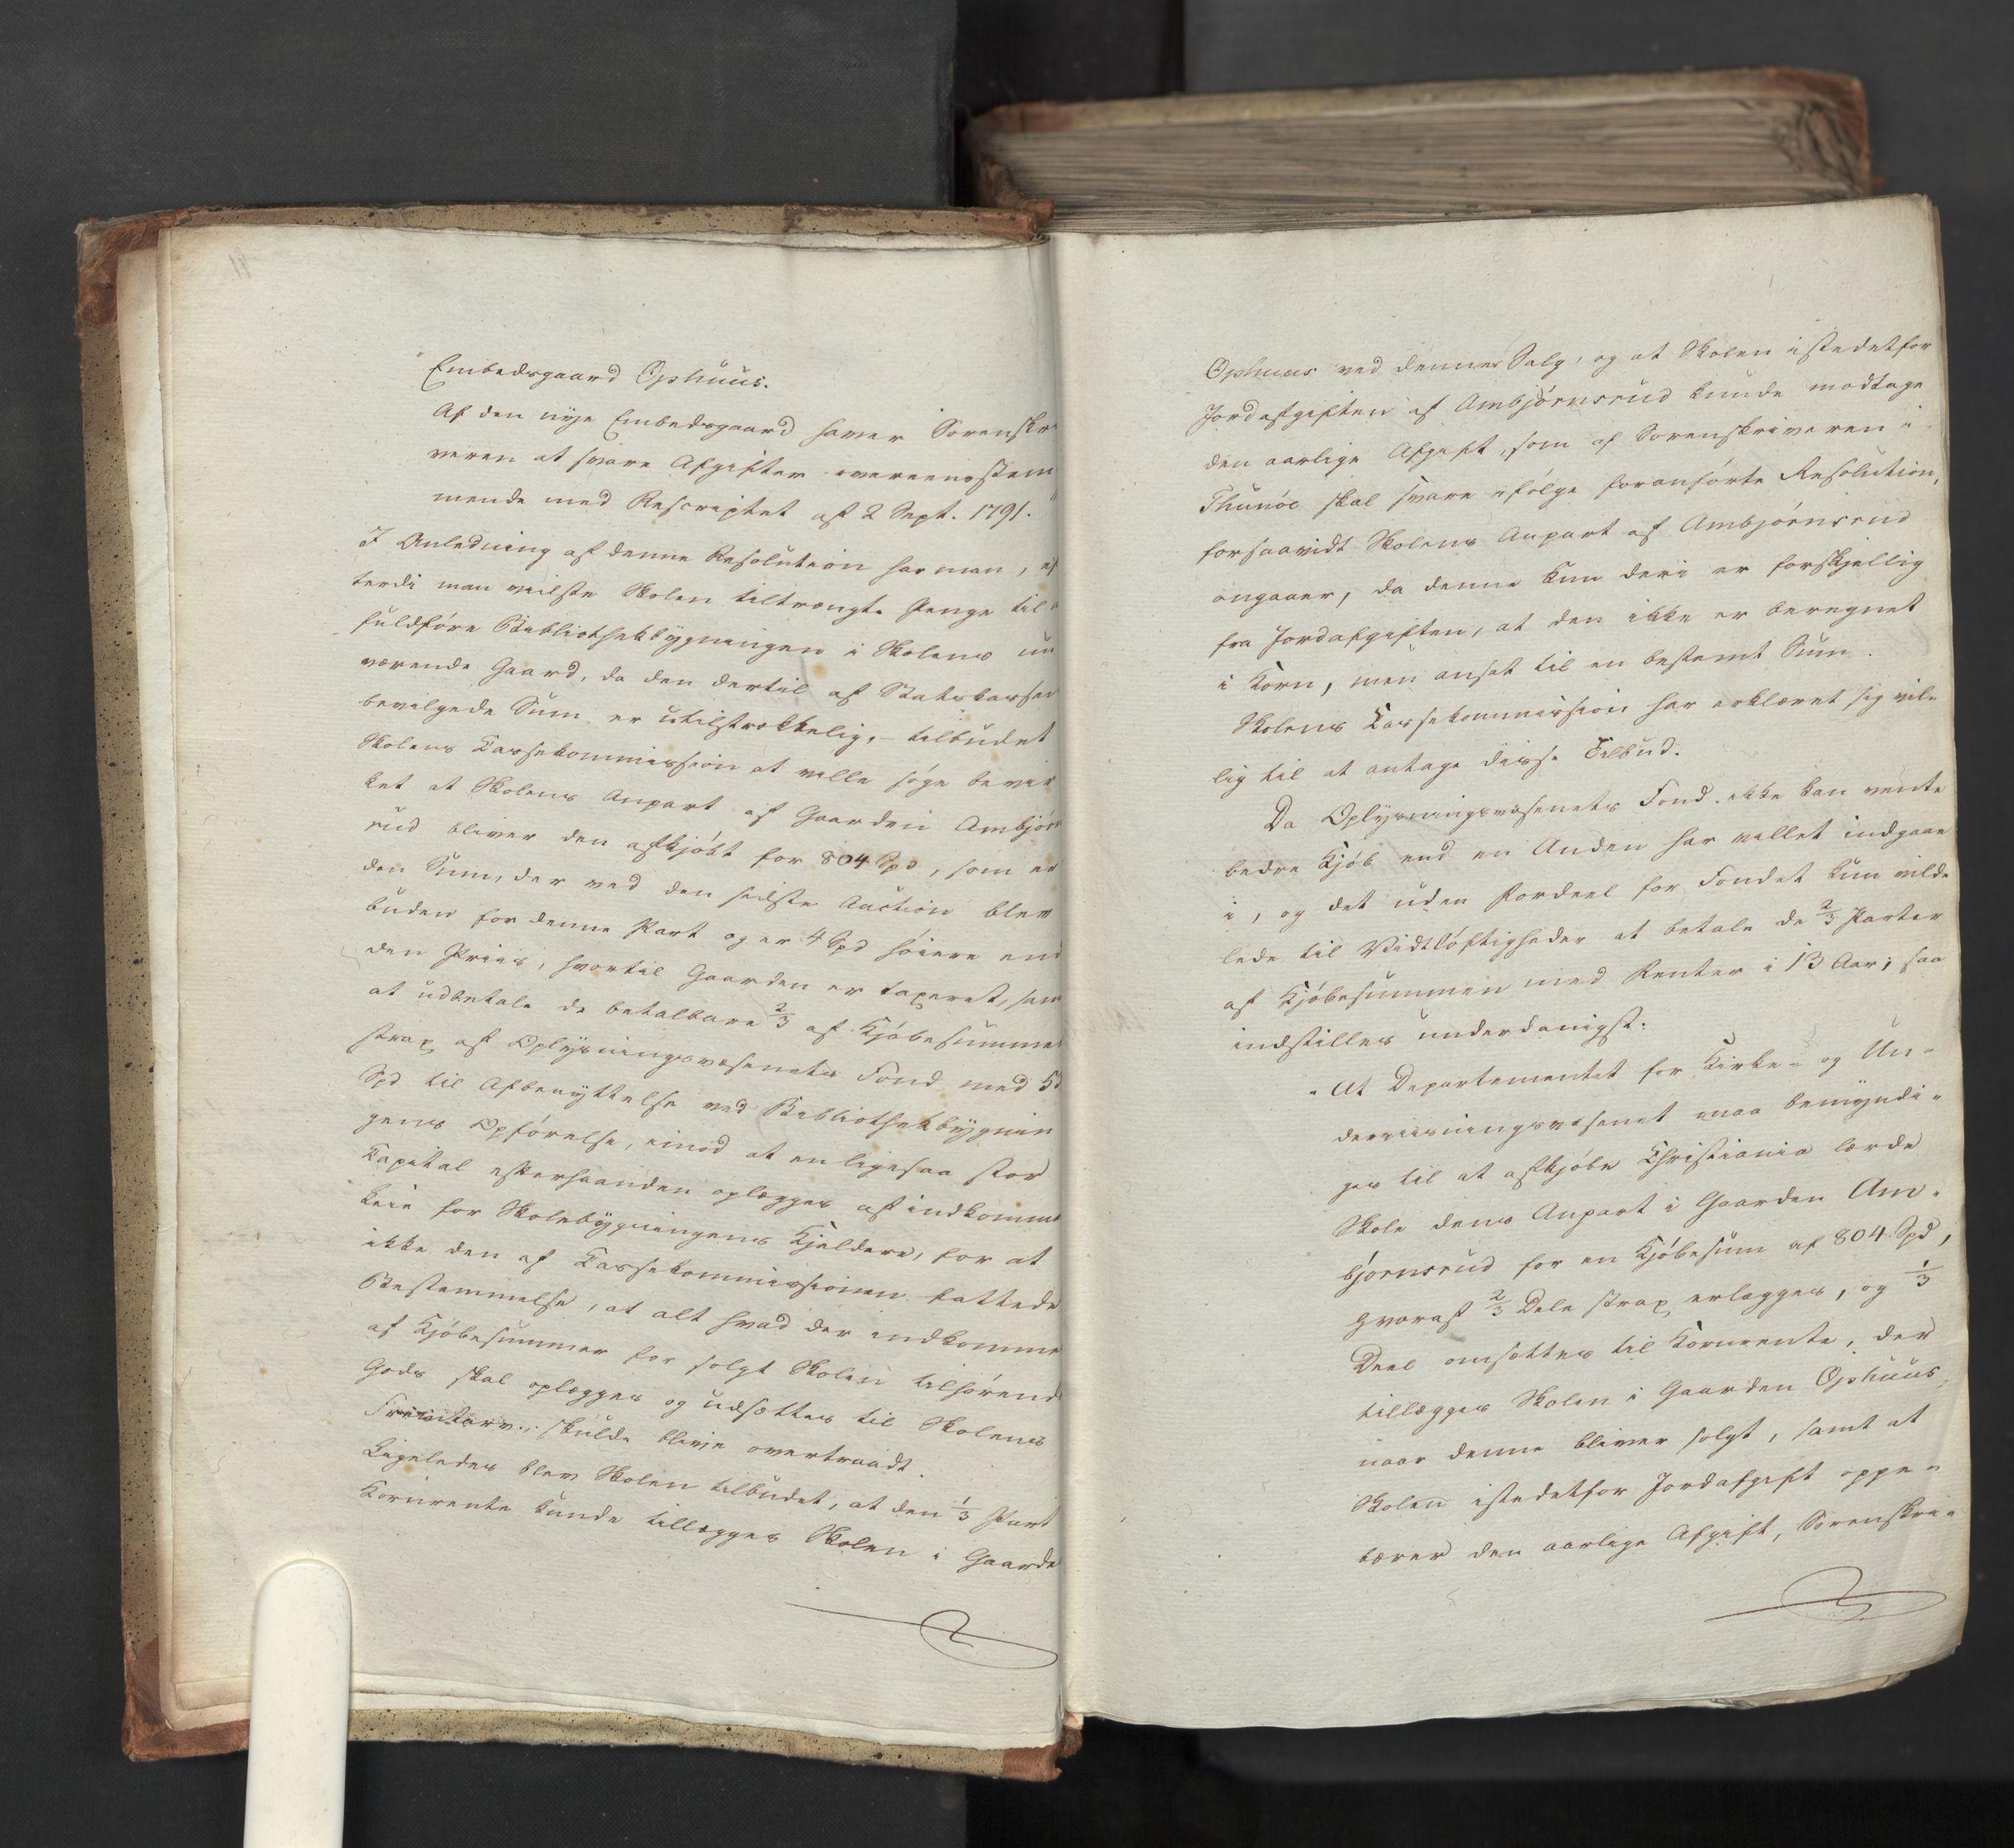 "Embedsgaard Ophuus.
Af den nye Embedsgaard haver Sorenskri
veren at svare Afgifter overeensstem
mende med Rescriptet af 2 Sept. 1791."
I Anledning af denne Resolution har man, ef
terdi man vidste Skolen tiltrængte Penge til
fuldføre Bibliothekbygningen i Skolens nu
værende Gaard, da den dertil af Statskassen
bevilgede Sum er utilstrækkelig, tilbudet
Skolens Cassekommission at ville søge bevir
ket at Skolens Anpart af Gaarden Ambjørns
rud bliver den afkjøbt for 804 Spd, som er
den Sum, der ved den sidste Auction blev
buden for denne Part og er 4 Spd høiere end
den Priis, hvortil Gaarden er taxeret, samt
at udbetale de betalbare 2/3 af Kjøbesummen
strax af Oplysningsvæsenets Fond med 5
Spd til Afbenyttelse ved Bibliothekbygnin
gens Opførelse, imod at en ligesaa stor
Capital efterhaanden oplægges af indkommen
Leie for Skolebygningens Kjeldere, for at
ikke den af Cassekommissionen fattede
Bestemmelse, at alt hvad der indkommer
af Kjøbesummer for solgt Skolen tilhørende
Gods skal oplægges og udsættes til Skolens
skulde blive overtraadt.
Ligeledes blev Skolen tilbudet, at den 1/3 Part
Kornrente kunde tillægges Skolen i Gaarden
Ophuus ved dennes Salg, og at Skolen istedetfor
Jordafgiften af Ambjørnsrud kunde modtage
den aarlige Afgift, som af Sorenskriveren i
Thunøe skal svare ifølge foranførte Resolution,
forsaavidt Skolens Anpart af Ambjørnsrud
angaaer, da denne kun deri er forskjellig
fra Jordafgiften, at den ikke er beregnet
i Korn, men ansat til en bestemt Sum.
Skolens Cassekommission har erklæret sig vil-
lig til at antage disse Tilbud.
Da Oplysningsvæsenets Fond ikke kan vente
bedre Kjøb end en Anden har villet indgaae
i, og det uden Fordeel for Fondet kun vilde
lede til Vidtløftigheder at betale de 2/3 Parter
af Kjøbesummen med Renter i 13 Aar; saa
indstilles underdanigst:
"At Departementet for Kirke- og Un-
derviisningsvæsenet maa bemyndi-
ges til at afkjøbe Christiania lærde
Skole dens Anpart i Gaarden Am-
bjørnsrud for en Kjøbesum af 804 Spd,
hvoraf 2/3 Dele strax erlægges, og 1/3
Deel omsættes til Kornrente, der
tillægges Skolen i Gaarden Ophuus,
naar denne bliver solgt, samt at
Skolen istedetfor Jordafgift oppe-
bærer den aarlige Afgift, Sorenskri-